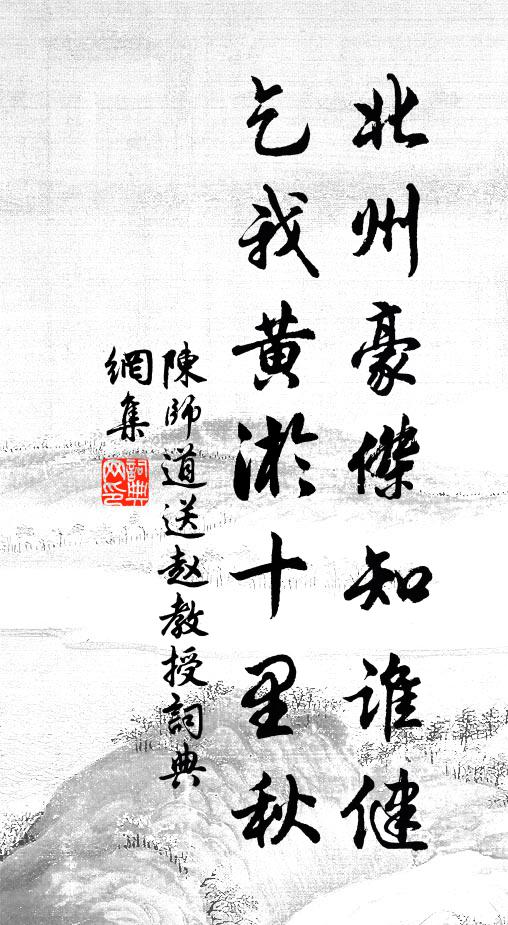 北州豪傑知誰健
乞我黃淤十里秋
陳師道送赵教授詞典
網集
詞典
网印